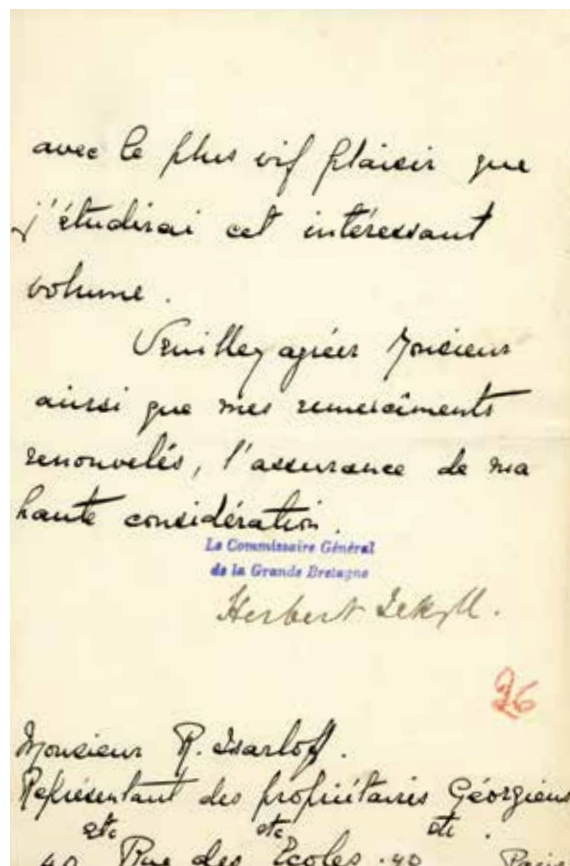 avec le plus vif plaisir que
j'étudirai cet intéressant
volume.
Veuillez agréer Monsieur
ainsi que mes remercîments
renouvelés, l'assurance de ma
haute considération.
Le Commissaire Général
de la Grande Bretagne
Herbert Jekyll.
26
Monsieur R. Isarloff.
Représentant des propriétaires Géorgiens
etc etc etc.
40 Rue des Ecoles . 40 Paris